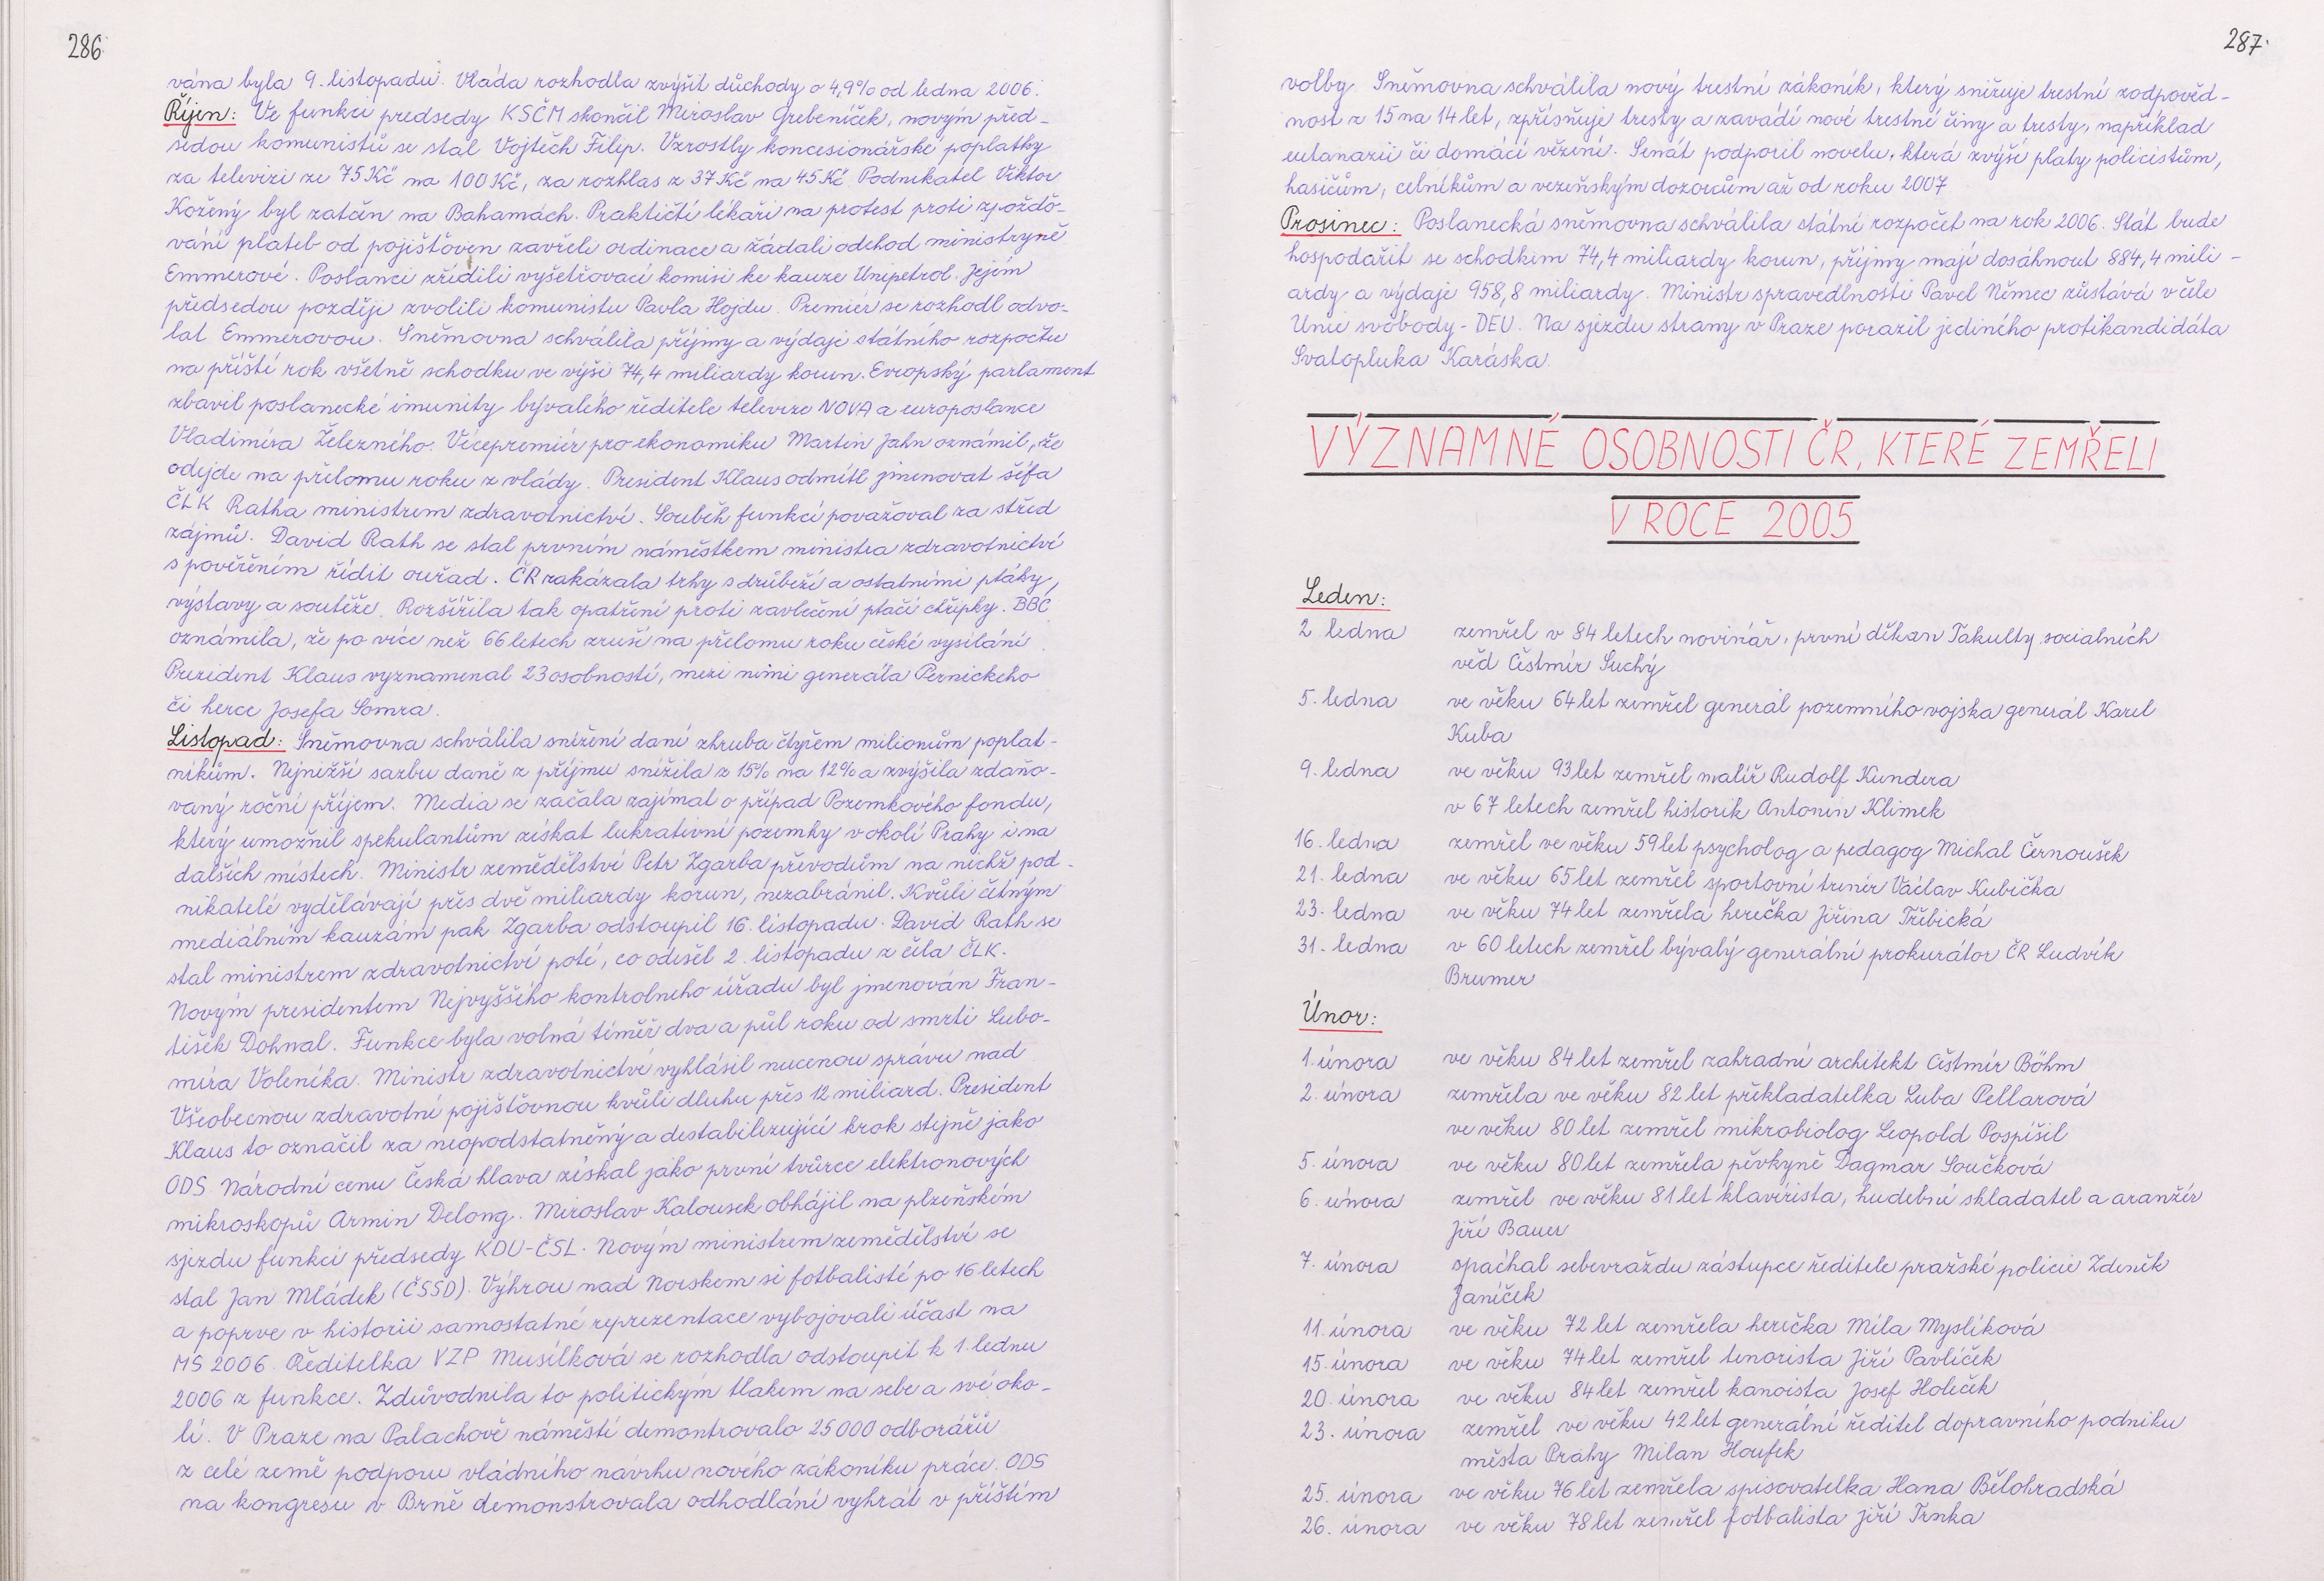 286
vána byla 9. listopadu. Vláda rozhodla zvýšit důchody o 4,9% od ledna 2006.
Říjen: Ve funkci předsedy KSČM skončil Miroslav Grebeníček, novým před-
sedou komunistů se stal Vojtěch Filip. Vzrostly koncesionářské poplatky
za televizi ze 75 Kč na 100 Kč, za rozhlas z 37 Kč na 45 Kč. Podnikatel Viktor
Kožený byl zatčen na Bahamách. Praktičtí lékaři na protest proti zpoždo-
vání plateb od pojišťoven zavřeli ordinace a žádali odchod ministryně
Emmerové. Poslanci zřídili vyšetřovací komisi ke kauze Unipetrol. Jejím
předsedou později zvolili komunistu Pavla Hojdu. Premiér se rozhodl odvo-
lat Emmerovou. Sněmovna schválila příjmy a výdaje státního rozpočtu
na příští rok všetně schodku ve výši 74,4 miliardy korun. Evropský parlament
zbavil poslanecké imunity bývalého ředitele televize NOVA a europoslance
Vladimíra Železného. Vicepremiér pro ekonomiku Martin Jahn oznámil, že
odejde na přelomu roku z vlády. President Klaus odmítl jmenovat šéfa
ČLK Ratha ministrem zdravotnictví. Souběh funkcí považoval za střed
zájmů. David Rath se stal prvním náměstkem ministra zdravotnictví
s pověřením řídit ouřad. ČR zakázala trhy s drůbeží a ostatními ptáky,
výstavy a soutěže. Rozšířila tak opatření proti zavlečení ptačí chřipky. BBC
oznámila, že po více než 66 letech zruší na přelomu roku české vysílání.
Prezident Klaus vyznamenal 23 osobností, mezi nimi generála Pernického
či herce Josefa Somra.
Listopad: Sněmovna schválila snížení daní zhruba čtyřem milionům poplat-
níkům. Nejnižší sazbu daně z příjmu snížila z 15% na 12% a zvýšila zdaňo-
vaný roční příjem. Media se začala zajímat o případ Pozemkového fondu,
který umožnil spekulantům získat lukrativní pozemky v okolí Prahy i na
dalších místech. Ministr zemědělství Petr Zgarba převodům na nichž pod-
nikatelé vydělávají přes dvě miliardy korun, nezabránil. Kvůli četným
mediálním kauzám pak Zgarba odstoupil 16. listopadu. David Rath se
stal ministrem zdravotnictví poté, co odešel 2. listopadu z čela ČLK.
Novým presidentem Nejvyššího kontrolneho úřadu byl jmenován Fran-
tišek Dohnal. Funkce byla volná téměř dva a půl roku od smrti Lubo-
míra Voleníka. Ministr zdravotnictví vyhlásil nucenou správu nad
Všeobecnou zdravotní pojišťovnou kvůli dluhu přes 12 miliard. President
Klaus to označil za neopodstatněný a destabilizující krok stejně jako
ODS. Národní cenu Česká hlava získal jako první tvůrce elektronových
mikroskopů Armin Delong. Miroslav Kalousek obhájil na plzeňském
sjezdu funkci předsedy KDU-ČSL. Novým ministrem zemědělství se
stal Jan Mládek (ČSSD). Výhrou nad Norskem si fotbalisté po 16 letech
a poprve v historii samostatné reprezentace vybojovali účast na
MS 2006. Ředitelka VZP Musílková se rozhodla odstoupit k 1. lednu
2006 z funkce. Zdůvodnila to politickým tlakem na sebe a své oko-
lí. V Praze na Palachově náměstí demontrovalo 25 000 odborářů
z celé země podporu vládního návrhu nového zákoníku práce. ODS
na kongresu v Brně demonstrovala odhodlání vyhrát v příštím
287
volby. Sněmovna schválila nový trestní zákoník, který snižuje trestní zodpověd-
nost z 15 na 14 let, zpřísňuje tresty a zavádí nové trestné činy a tresty, například
eutanazii či domácí vězení. Senát podpořil novelu, která zvýší platy policistům,
hasičům, celníkům a vezeňským dozorcům až od roku 2007
Prosinec: Poslanecká sněmovna schválila státní rozpočet na rok 2006. Stát bude
hospodařit se schodkem 74,4 miliardy korun, příjmy mají dosáhnout 884,4 mili-
ardy a výdaje 958,8 miliardy. Ministr spravedlnosti Pavel Němec zůstává v čele
Unie svobody - DEU. Na sjezdu strany v Praze porazil jediného protikandidáta
Svatopluka Karáska.
VÝZNAMNÉ OSOBNOSTI ČR, KTERÉ ZEMŘELI
V ROCE 2005
Leden:
2. ledna zemřel v 84 letech novinář, první děkan Fakulty socialních
věd Čestmír Suchý
5. ledna ve věku 64 let zemřel generál pozemního vojska generál Karel
Kuba
9. ledna ve věku 93 let zemřel malíř Rudolf Kundera
v 67 letech zemřel historik Antonín Klimek
16. ledna zemřel ve věku 59 let psycholog a pedagog Michal Černoušek
21. ledna ve věku 65 let zemřel sportovní trenér Václav Kubička
23. ledna ve věku 74 let zemřela herečka Jiřina Třebická
31. ledna v 60 letech zemřel bývalý generální prokurátor ČR Ludvík
Brunner
Únor:
1. února ve věku 84 let zemřel zahradní architekt Čestmír Böhm
2. února zemřela ve věku 82 let překladatelka Luba Pellarová
ve věku 80 let zemřel mikrobiolog Leopold Pospíšil
5. února ve věku 80 let zemřela pěvkyně Dagmar Součková
6. února zemřel ve věku 81 let klavírista, hudební skladatel a aranžér
Jiří Bauer
7. února spáchal sebevraždu zástupce ředitele pražské policie Zdeněk
Janíček
11. února ve věku 72 let zemřela herečka Míla Myslíková
15. února ve věku 74 let zemřel tenorista Jiří Pavlíček
20. února ve věku 84 let zemřel kanoista Josef Holeček
23. února zemřel ve věku 42 let generální ředitel dopravního podniku
města Prahy Milan Houfek
25. února ve věku 76 let zemřela spisovatelka Hana Bělohradská
26. února ve věku 78 let zemřel fotbalista Jiří Trnka